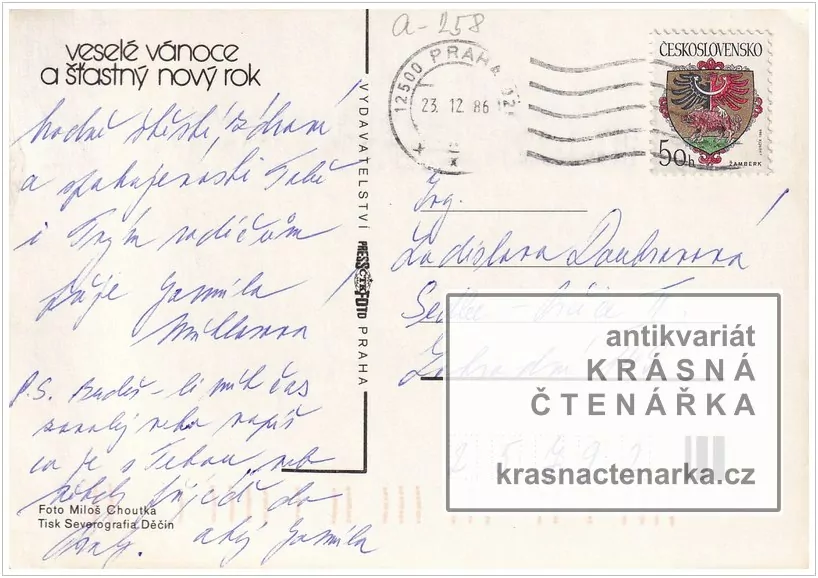 a-258
veselé vánoce
a šťastný nový rok
12500 PRAHA 12
23. 12. 86
ČESKOSLOVENSKO
50h
ŽAMBERK
VYDAVATELSTVÍ PRESSFOTO PRAHA
ČTK
Hodně štěstí, zdraví
a spokojenosti Tobě
i Tvým rodičům
přeje Jarmila
P.S. Budeš-li mít čas
zavolej nebo napiš
co je s Tebou neb
přijeď do
Prahy. ahoj Jarmila
Foto Miloš Choutka
Tisk Severografia Děčín
Ing.
Ladislava Doubravová
Sedlec - II.
antikvariát
KRÁSNÁ
ČTENÁŘKA
krasnactenarka.cz